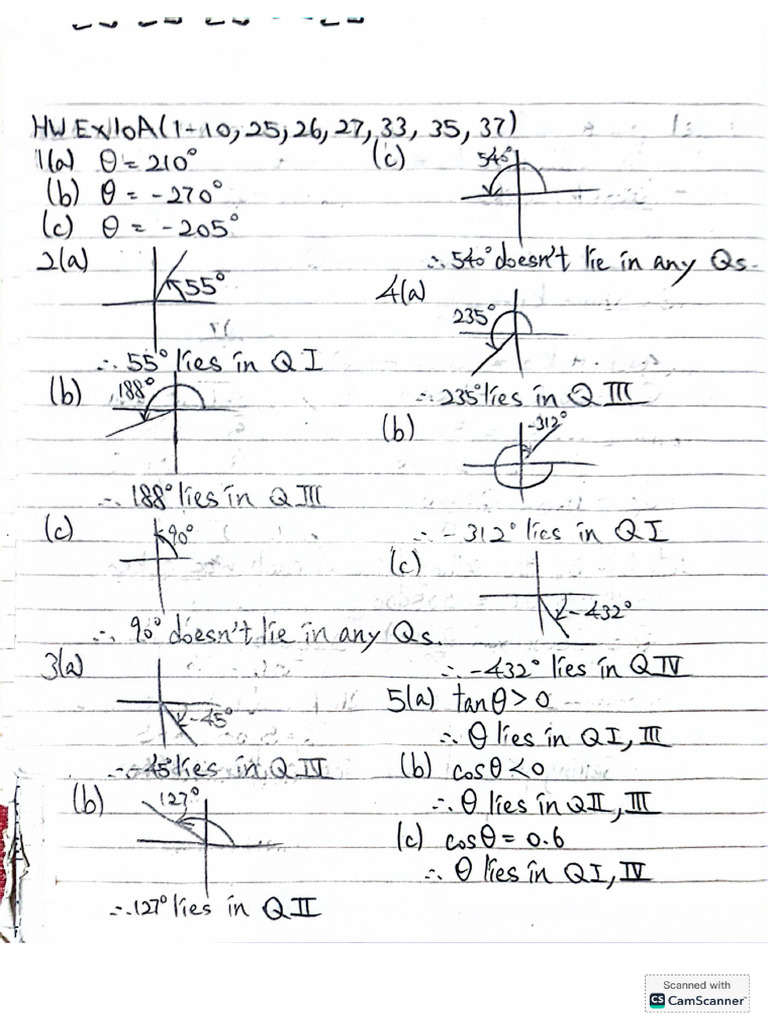 HW Ex10A(1-10, 25, 26, 27, 33, 35, 37)
1(a) θ = 210°
(b) θ = -270°
(c) θ = -205°
2(a)
55°
∴ 55° lies in Q I
(b)
188°
∴ 188° lies in Q III
(c)
90°
∴ 90° doesn't lie in any Qs.
3(a)
-45°
∴ -45° lies in Q IV
(b)
127°
∴ 127° lies in Q II
(c)
540°
∴ 540° doesn't lie in any Qs.
4(a)
235°
∴ 235° lies in Q III
(b)
-312°
∴ -312° lies in Q I
(c)
-432°
∴ -432° lies in Q IV
5(a) tanθ > 0
∴ θ lies in Q I, III
(b) cosθ < 0
∴ θ lies in Q II, III
(c) cosθ = 0.6
∴ θ lies in Q I, IV
Scanned with
CS CamScanner